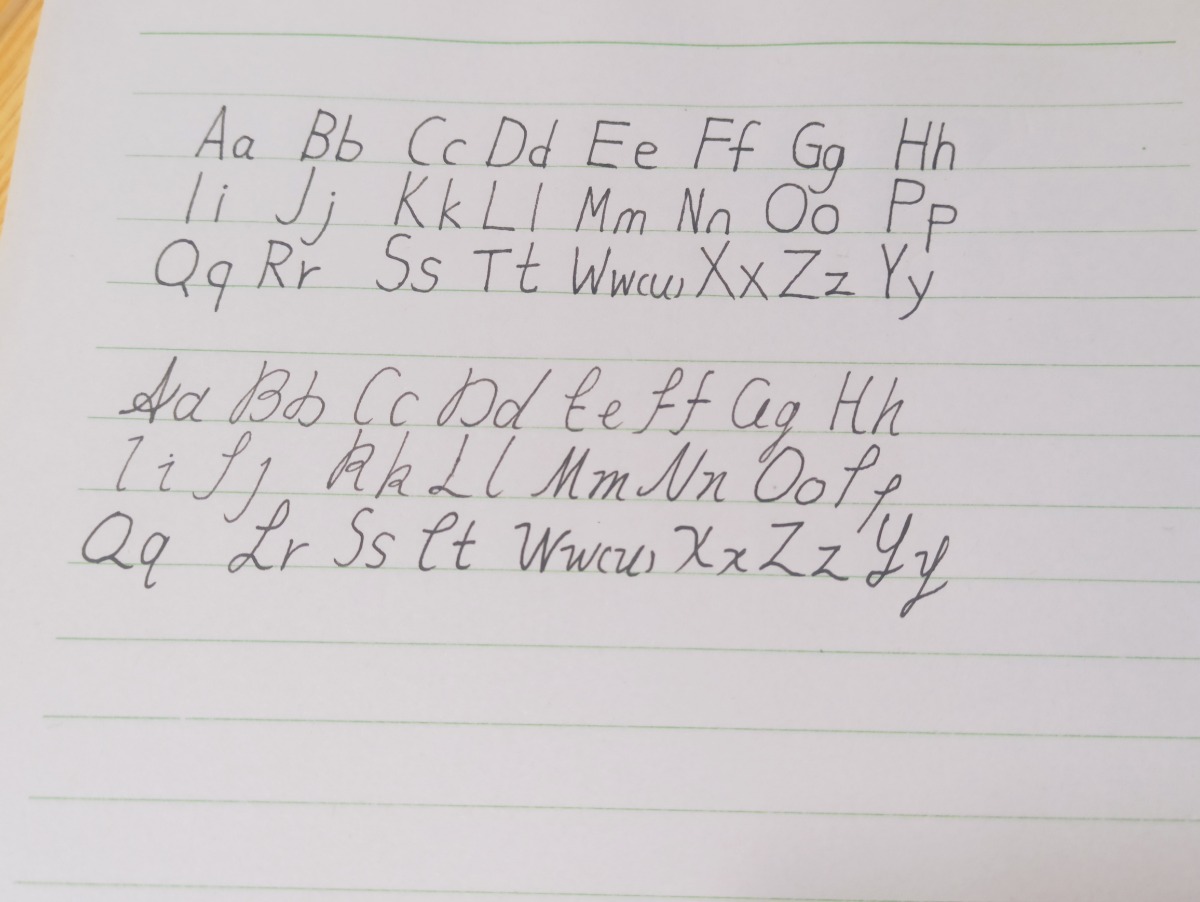 Aa Bb Cc Dd Ee Ff Gg Hh
Ii Jj Kk Ll Mm Nn Oo Pp
Qq Rr Ss Tt Ww Xx Zz Yy
Aa Bb Cc Dd Ee Ff Gg Hh
Ii Jj Kk Ll Mm Nn Oo Pp
Qq Rr Ss Tt Ww Xx Zz Yy